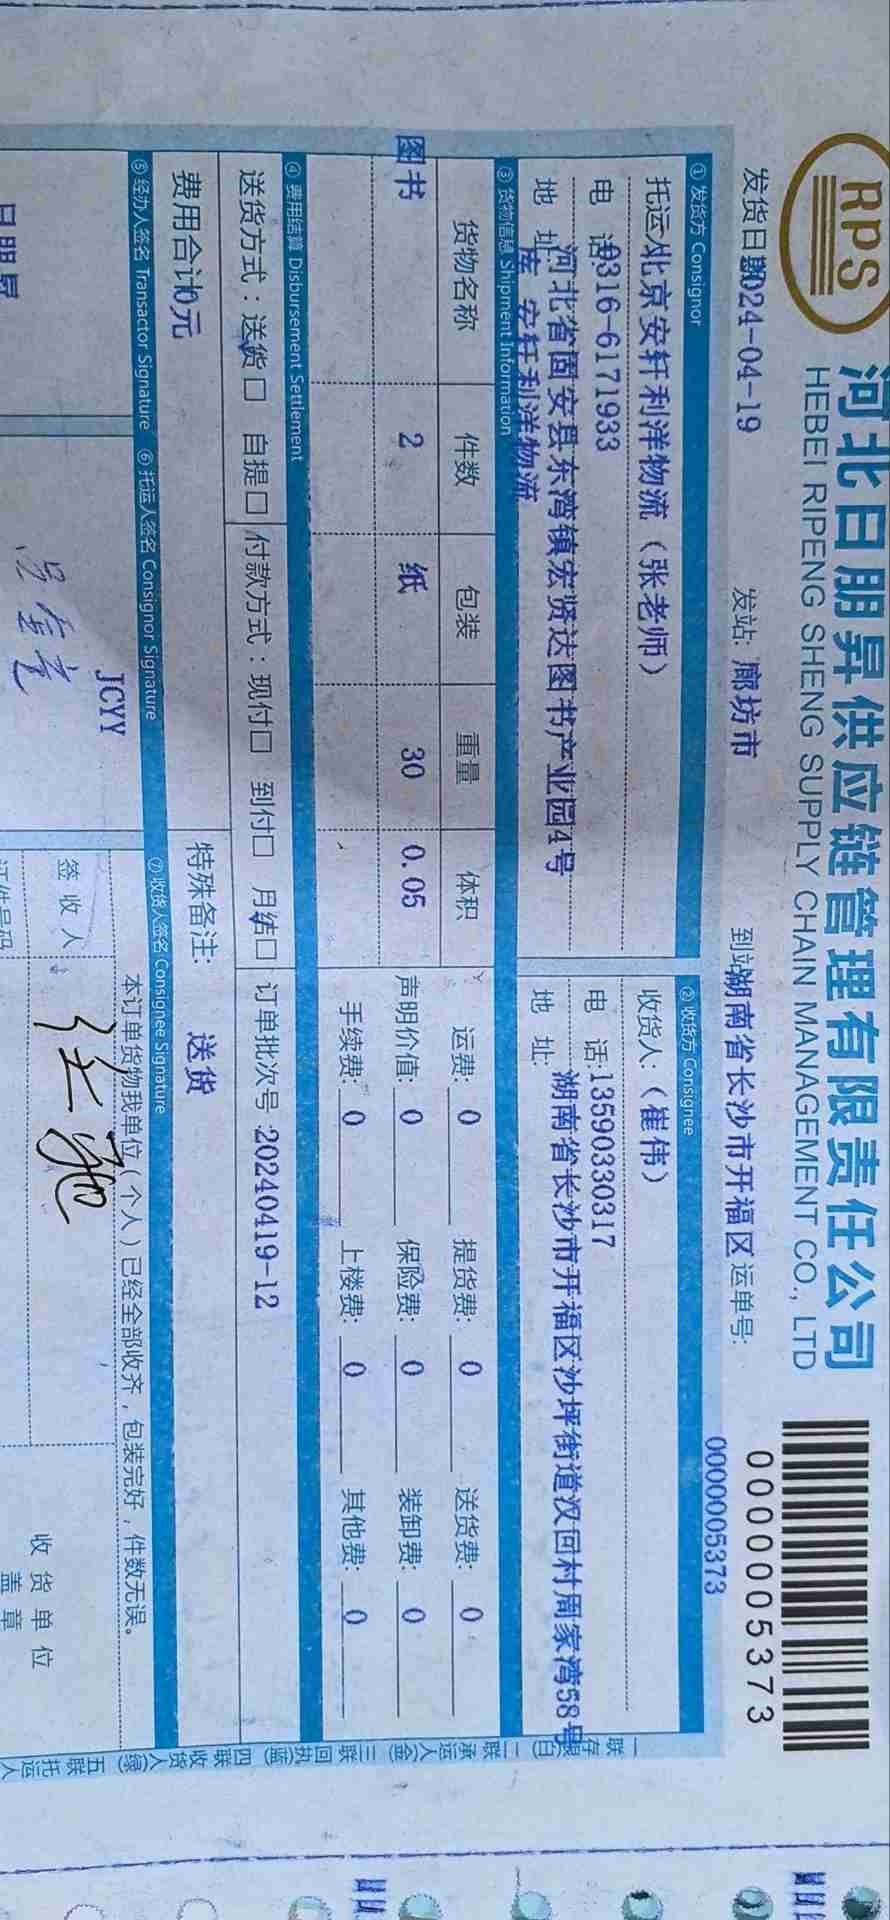 RPS
河北日朋昇供应链管理有限责任公司
HEBEI RIPENG SHENG SUPPLY CHAIN MANAGEMENT CO., LTD
0000005373
发货日期2024-04-19 发站: 廊坊市 到站湖南省长沙市开福区 运单号: 0000005373
① 发货方 Consignor ② 收货方 Consignee
托运人北京安轩利洋物流（张老师） 收货人:（崔伟）
电 话0316-6171933 电 话:13590330317
地 址河北省固安县东湾镇宏贤达图书产业园4号 地 址: 湖南省长沙市开福区沙坪街道汉回村周家湾58号
库 安轩利洋物流
③ 货物信息 Shipment Information
货物名称 件数 包装 重量 体积 运费: 0 提货费: 0 送货费: 0
图书 2 纸 30 0.05 声明价值: 0 保险费: 0 装卸费: 0
手续费: 0 上楼费: 0 其他费: 0
④ 费用结算 Disbursement Settlement
送货方式：送货□ 自提□ 付款方式：现付□ 到付□ 月结□ 订单批次号:20240419-12
费用合计0元 特殊备注: 送货
⑤ 经办人签名 Transactor Signature ⑥ 托运人签名 Consignor Signature ⑦ 收货人签名 Consignee Signature
JCYY 本订单货物我单位（个人）已经全部收齐，包装完好，件数无误。
签收人
收货单位
盖章
日朋昇
证件号码
一联存根(白) 二联承运人(金) 三联回执(蓝) 四联收货人(绿) 五联托运人